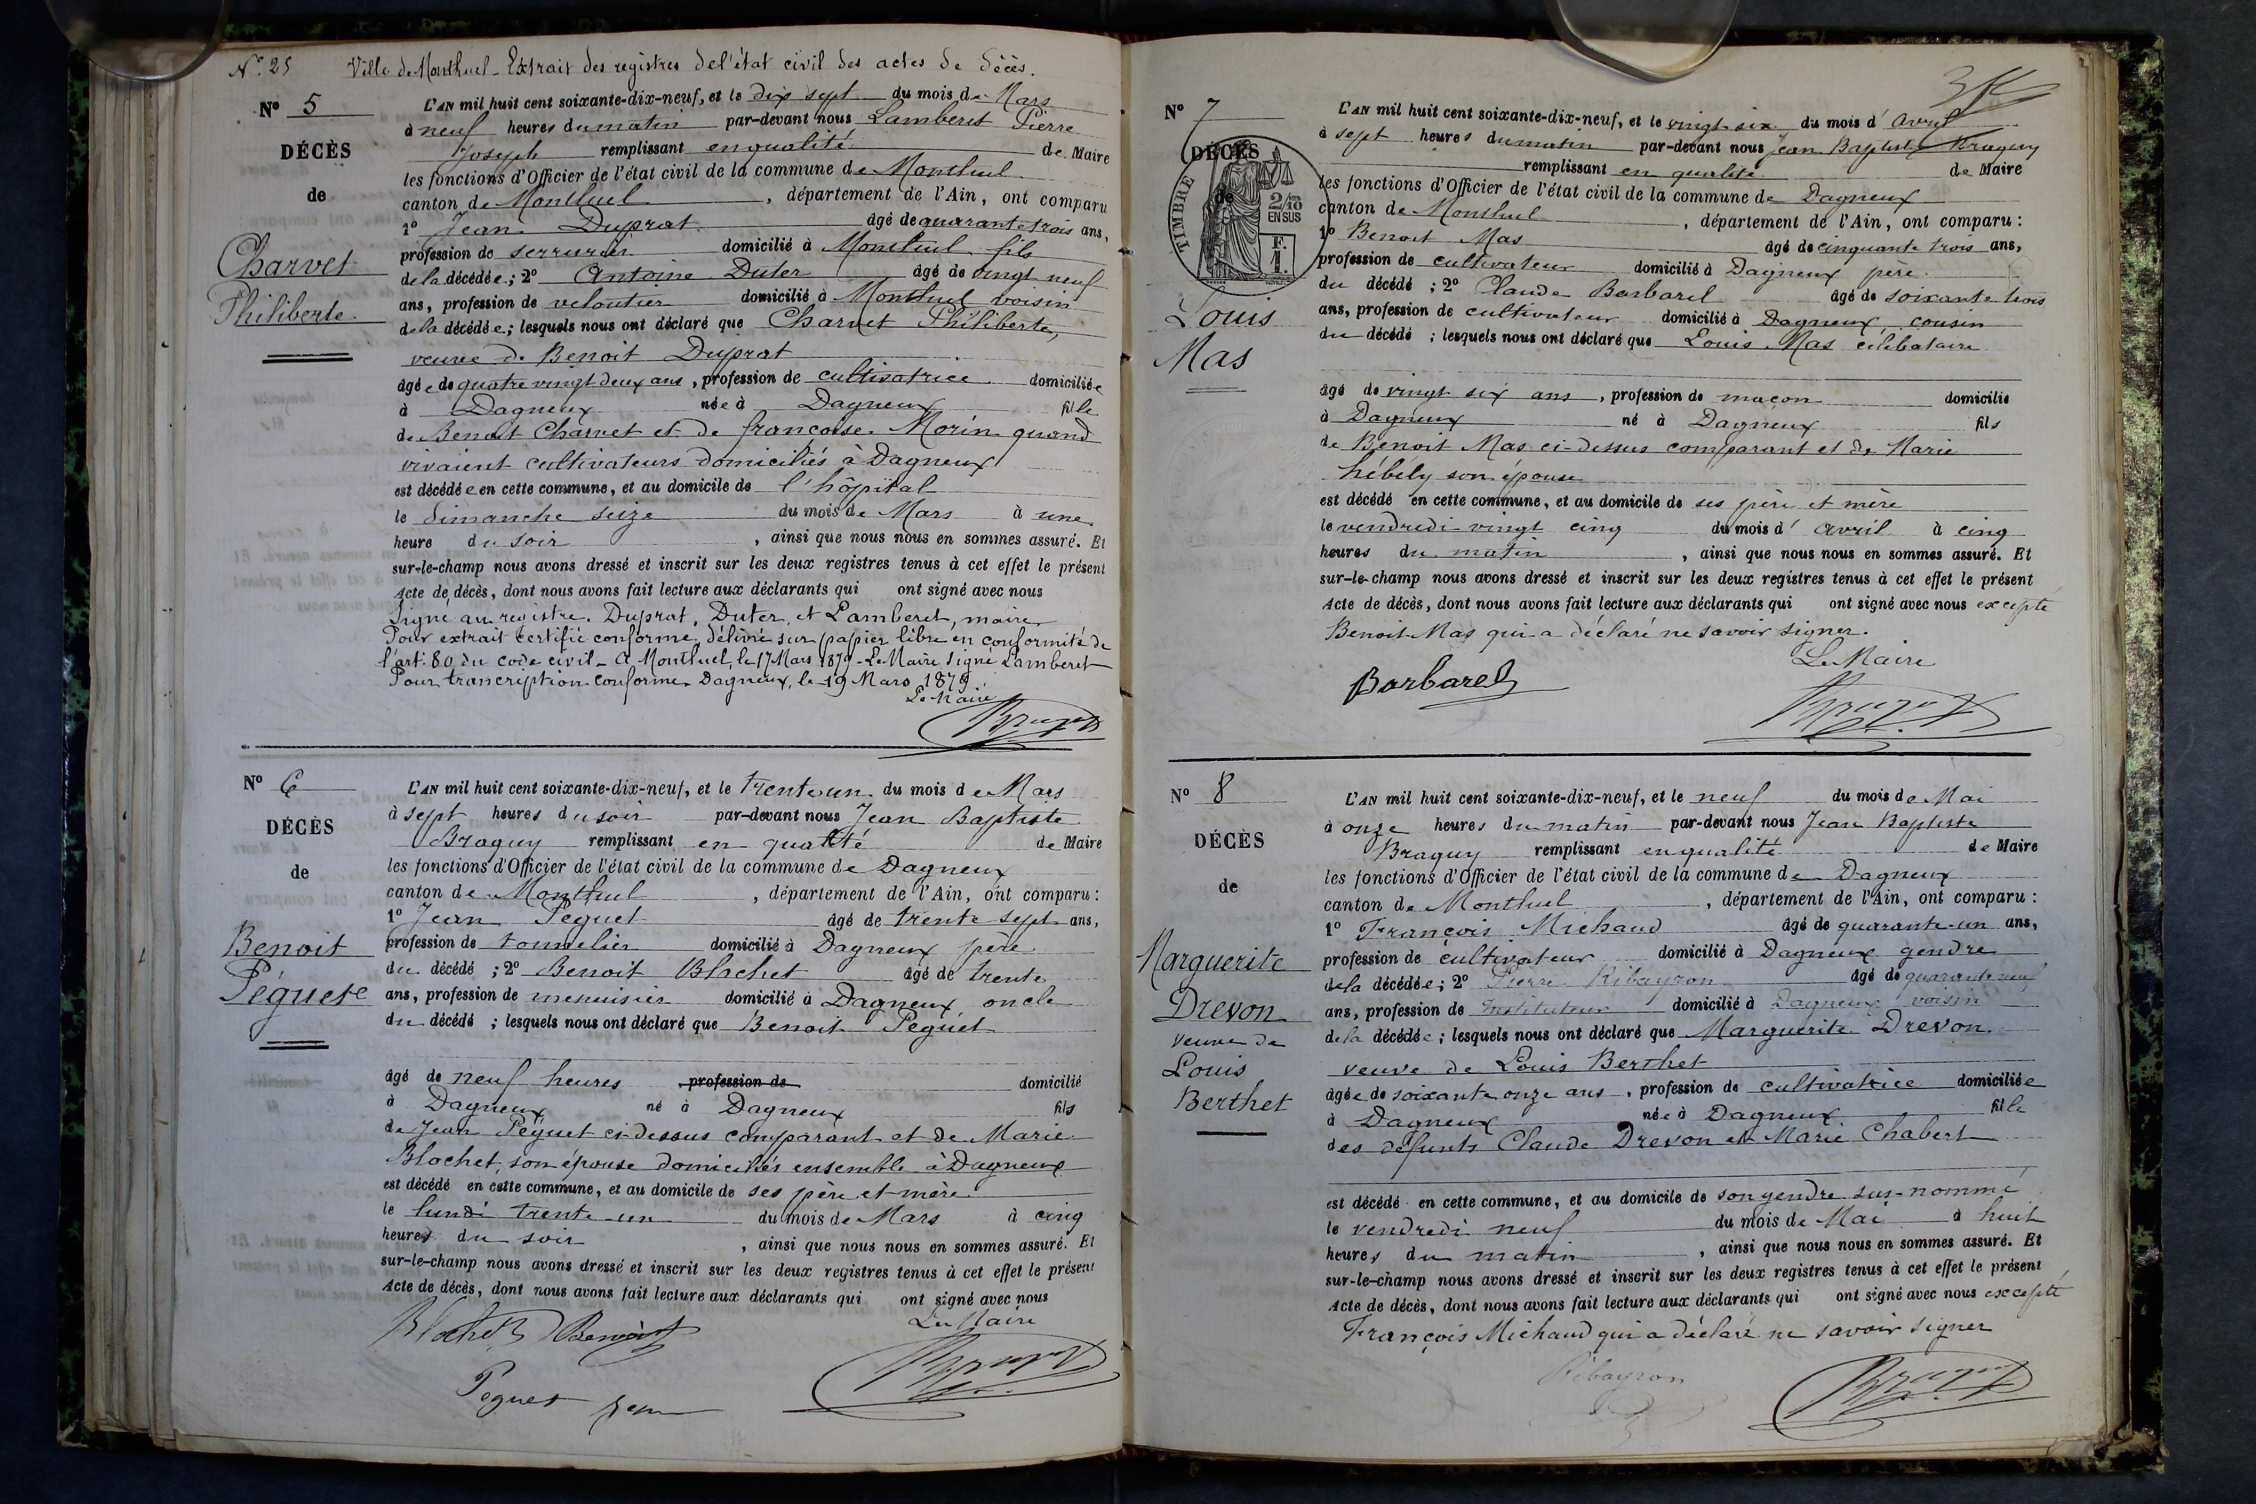 N° 25 Ville de Montluel - Extrait des registres de l'état civil des actes de décès.
N° 5
DÉCÈS
de
Charvet
Philiberte
L'AN mil huit cent soixante-dix-neuf, et le dix sept du mois de Mars
à neuf heures du matin par-devant nous Lamberet Pierre
Joseph remplissant en qualité de Maire
les fonctions d'Officier de l'état civil de la commune de Montluel
canton de Montluel, département de l'Ain, ont comparu
1° Jean Duprat âgé de quarante trois ans,
profession de serrurier domicilié à Montluel fils
de la décédée; 2° Antoine Duter âgé de vingt neuf
ans, profession de veloutier domicilié à Montluel voisin
de la décédée; lesquels nous ont déclaré que Charvet Philiberte,
veuve de Benoit Duprat
âgée de quatre vingt deux ans, profession de cultivatrice domiciliée
à Dagneux née à Dagneux fille
de Benoit Charvet et de françoise Morin quand
vivaient cultivateurs domiciliés à Dagneux
est décédée en cette commune, et au domicile de l'hôpital
le dimanche seize du mois de Mars à une
heure du soir, ainsi que nous nous en sommes assuré. Et
sur-le-champ nous avons dressé et inscrit sur les deux registres tenus à cet effet le présent
Acte de décès, dont nous avons fait lecture aux déclarants qui ont signé avec nous
Signé au registre. Duprat, Duter, et Lamberet, maire
Pour extrait certifié conforme, délivré sur papier libre en conformité de
l'art: 80 du code civil - A Montluel, le 17 Mars 1879 - Le Maire signé Lamberet
Pour transcription conforme Dagneux, le 19 Mars 1879
Le Maire
N° 6
DÉCÈS
de
Benoit
Péguet
L'AN mil huit cent soixante-dix-neuf, et le trente un du mois de Mars
à sept heures du soir par-devant nous Jean Baptiste
Braguy remplissant en qualité de Maire
les fonctions d'Officier de l'état civil de la commune de Dagneux
canton de Montluel, département de l'Ain, ont comparu :
1° Jean Péguet âgé de trente sept ans,
profession de tonnelier domicilié à Dagneux père
du décédé ; 2° Benoit Blochet âgé de trente
ans, profession de menuisier domicilié à Dagneux oncle
du décédé ; lesquels nous ont déclaré que Benoit Péguet
âgé de neuf heures profession de domicilié
à Dagneux né à Dagneux fils
de Jean Péguet ci-dessus comparant et de Marie
Blochet, son épouse domiciliés ensemble à Dagneux
est décédé en cette commune, et au domicile de ses père et mère
le lundi trente-un du mois de Mars à cinq
heures du soir, ainsi que nous nous en sommes assuré. Et
sur-le-champ nous avons dressé et inscrit sur les deux registres tenus à cet effet le présent
Acte de décès, dont nous avons fait lecture aux déclarants qui ont signé avec nous
Le Maire
Blochet Benoit
Peguet Jean
N° 7
DÉCÈS
de
TIMBRE
2/10 EN SUS
F. 1.
Louis
Mas
L'AN mil huit cent soixante-dix-neuf, et le vingt-six du mois d'avril
à sept heures du matin par-devant nous Jean Baptiste Braguy
remplissant en qualité de Maire
les fonctions d'Officier de l'état civil de la commune de Dagneux
canton de Montluel, département de l'Ain, ont comparu :
1° Benoit Mas âgé de cinquante trois ans,
profession de cultivateur domicilié à Dagneux père
du décédé ; 2° Claude Barbarel âgé de soixante trois
ans, profession de cultivateur domicilié à Dagneux cousin
du décédé ; lesquels nous ont déclaré que Louis Mas célibataire
âgé de vingt six ans, profession de maçon domicilié
à Dagneux né à Dagneux fils
de Benoit Mas ci-dessus comparant et de Marie
hébely son épouse
est décédé en cette commune, et au domicile de ses père et mère
le vendredi vingt cinq du mois d'avril à cinq
heures du matin, ainsi que nous nous en sommes assuré. Et
sur-le-champ nous avons dressé et inscrit sur les deux registres tenus à cet effet le présent
Acte de décès, dont nous avons fait lecture aux déclarants qui ont signé avec nous excepté
Benoit Mas qui a déclaré ne savoir signer.
Le Maire
Barbarel
N° 8
DÉCÈS
de
Marguerite
Drevon
veuve de
Louis
Berthet
L'AN mil huit cent soixante-dix-neuf, et le neuf du mois de Mai
à onze heures du matin par-devant nous Jean Baptiste
Braguy remplissant en qualité de Maire
les fonctions d'Officier de l'état civil de la commune de Dagneux
canton de Montluel, département de l'Ain, ont comparu :
1° François Michaud âgé de quarante-un ans,
profession de cultivateur domicilié à Dagneux gendre
de la décédée; 2° Pierre Ribayron âgé de quarante neuf
ans, profession de instituteur domicilié à Dagneux voisin
de la décédée ; lesquels nous ont déclaré que Marguerite Drevon
veuve de Louis Berthet
âgée de soixante onze ans, profession de cultivatrice domiciliée
à Dagneux née à Dagneux fille
des défunts Claude Drevon et Marie Chabert
est décédé en cette commune, et au domicile de son gendre sus-nommé
le vendredi neuf du mois de Mai à huit
heures du matin, ainsi que nous nous en sommes assuré. Et
sur-le-champ nous avons dressé et inscrit sur les deux registres tenus à cet effet le présent
Acte de décès, dont nous avons fait lecture aux déclarants qui ont signé avec nous excepté
François Michaud qui a déclaré ne savoir signer
Ribayron